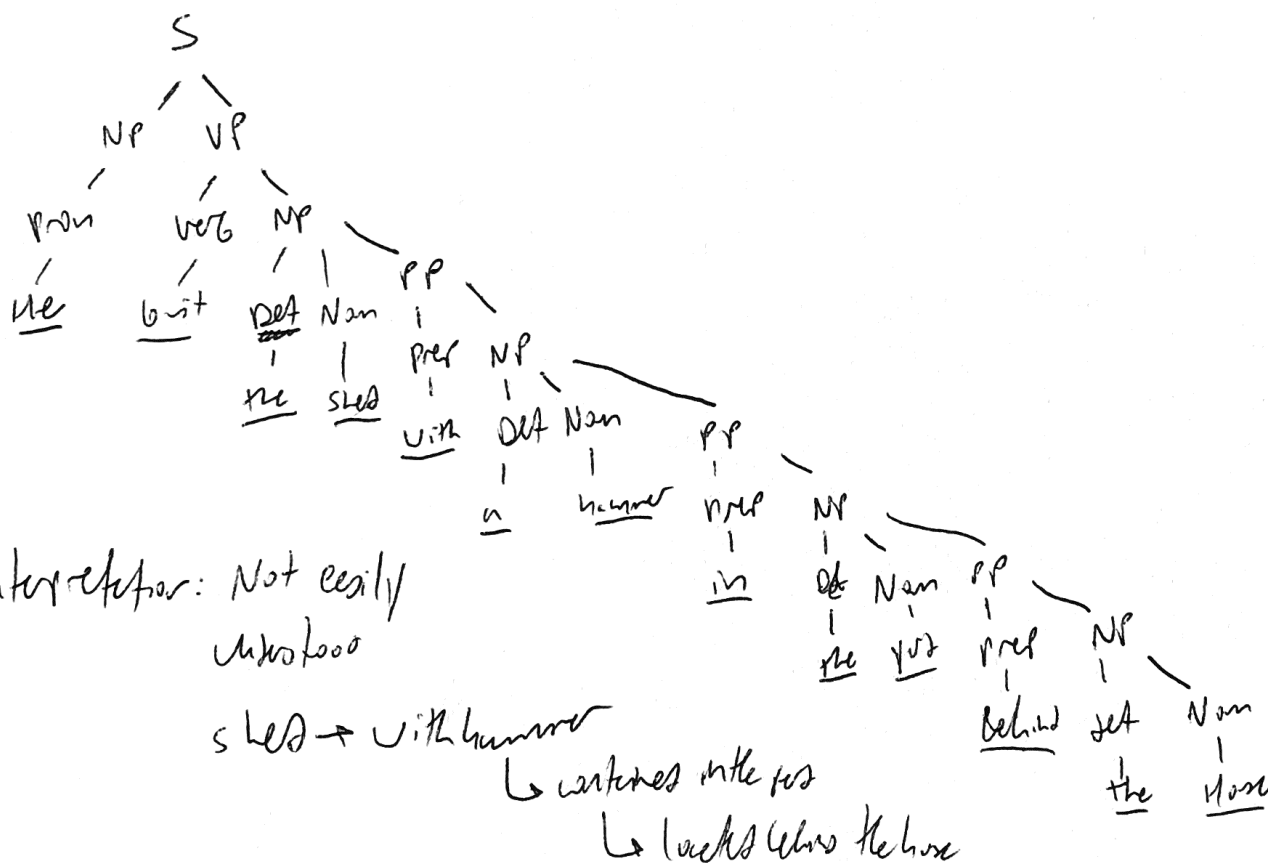 S
NP VP
pron verb NP
He built Det Noun PP
the shed prep NP
with Det Noun PP
a hammer prep NP
in Det Noun PP
the yard prep NP
Behind det Noun
the House
Interpretation: Not easily
understood
shed → with hammer
↳ contained in the yard
↳ located behind the house